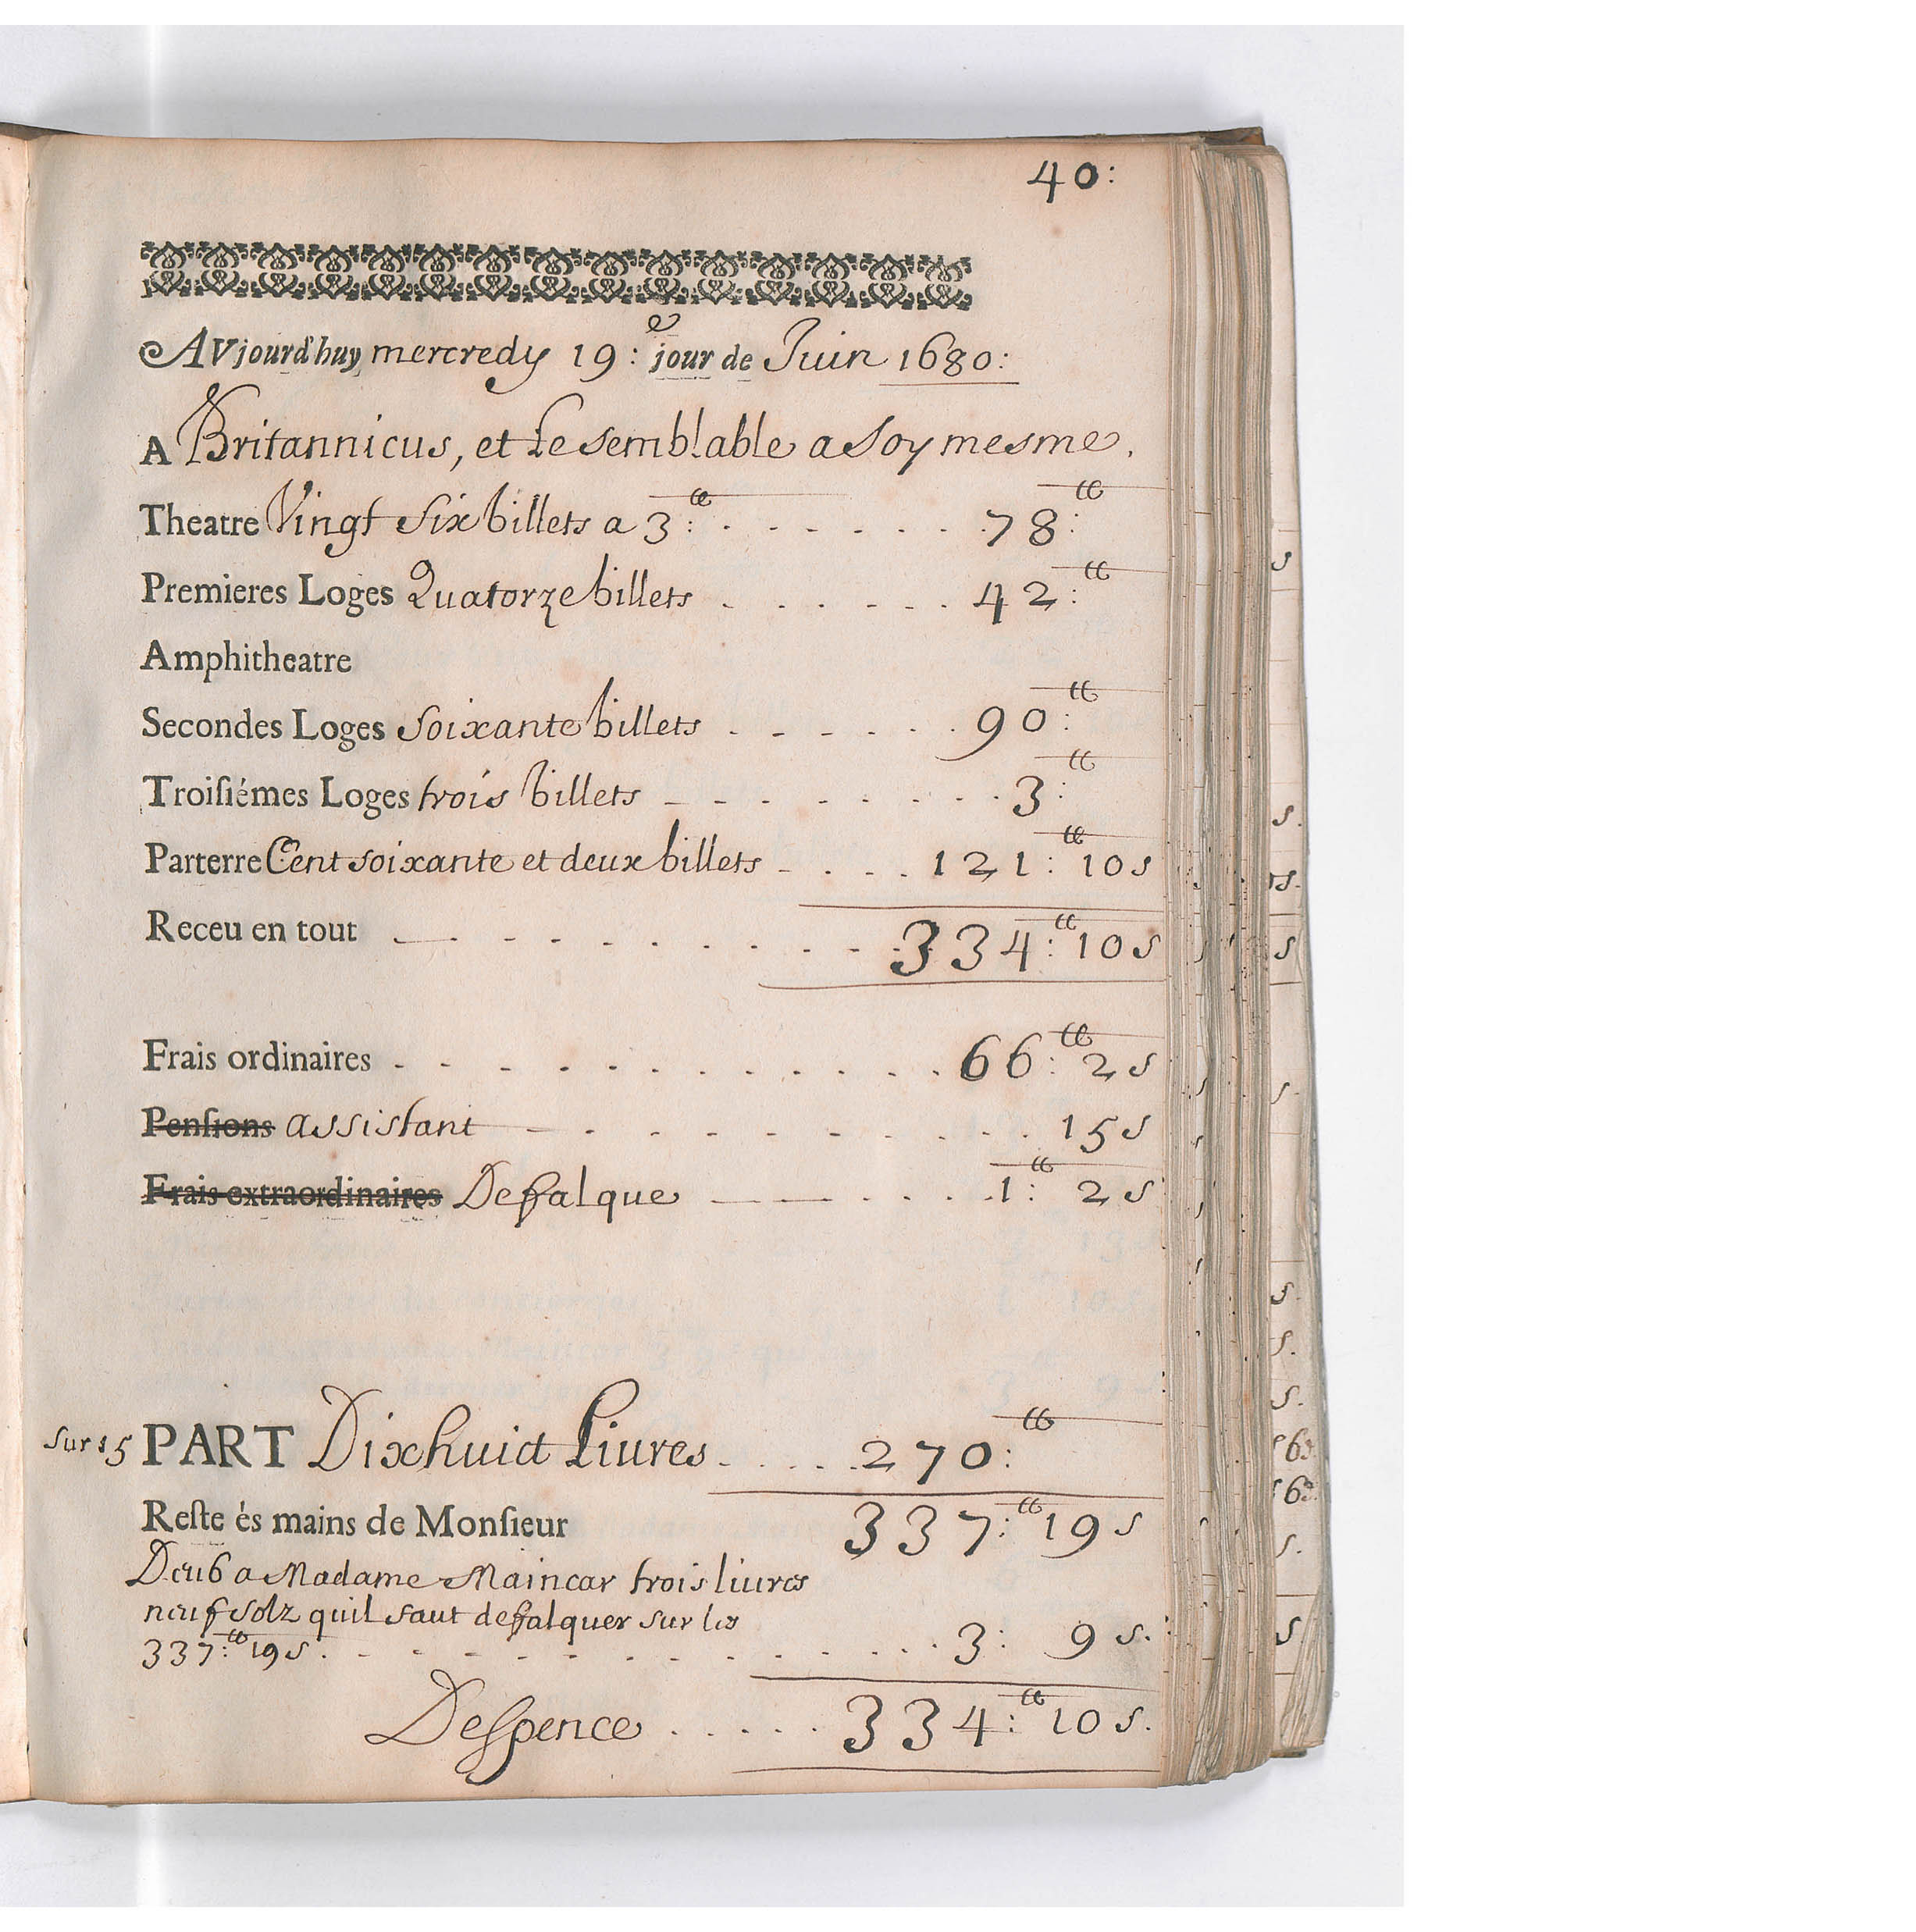 40:
AVjourd'huy mercredy 19:e jour de Juin 1680:
A Britannicus, et Le semblable a Soy mesme.
Theatre Vingt Six billets a 3:tt . . . . . . . 78:tt
Premieres Loges Quatorze billets . . . . . . 42:tt
Amphitheatre
Secondes Loges Soixante billets . . . . . . 90:tt
Troisiémes Loges trois billets . . . . . . . . 3:tt
Parterre Cent soixante et deux billets . . . . 121:tt 10s
Receu en tout . . . . . . . . . . 334:tt 10s
Frais ordinaires . . . . . . . . . . . . 66:tt 2s
Pensions assistant . . . . . . . . . . 15s
Frais extraordinaires Defalque . . . . 1:tt 2s
Sur 15 PART Dixhuict Liures . . . . . 270:tt
Reste és mains de Monsieur 337:tt 19s
Deub a Madame Maincar trois liures
neuf solz quil faut defalquer sur les
337:tt 19s . . . . . . . . . . . . . 3: 9s.
Despence . . . . . 334:tt 10s.